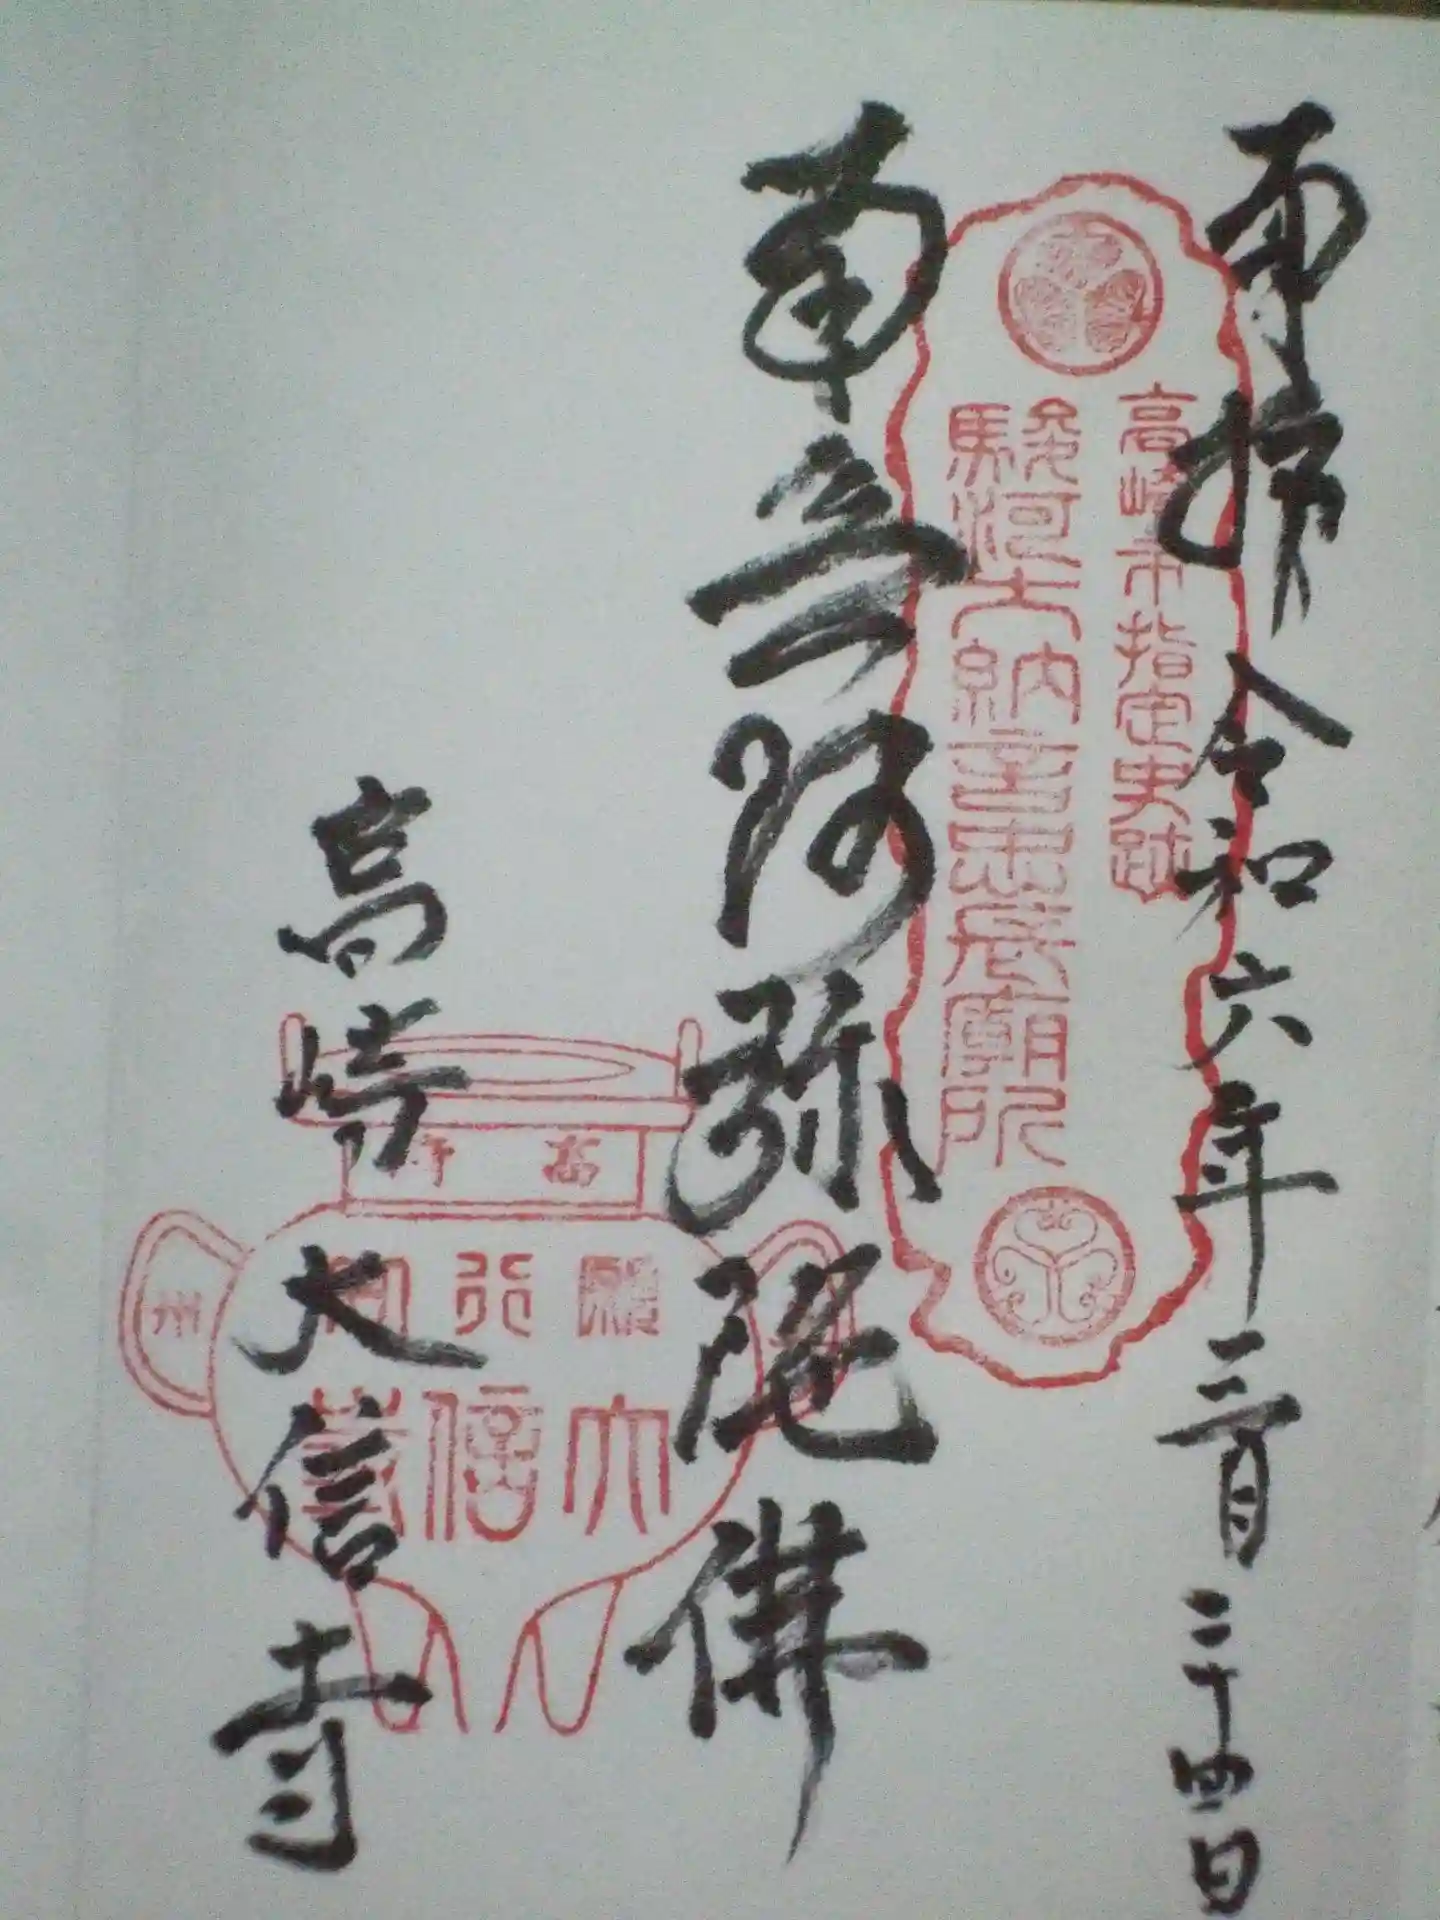 奉拝 令和六年三月二十四日
高崎市指定史跡
駿河大納言忠長廟所
南無阿弥陀佛
高崎 大信寺
高
願行
大信
州